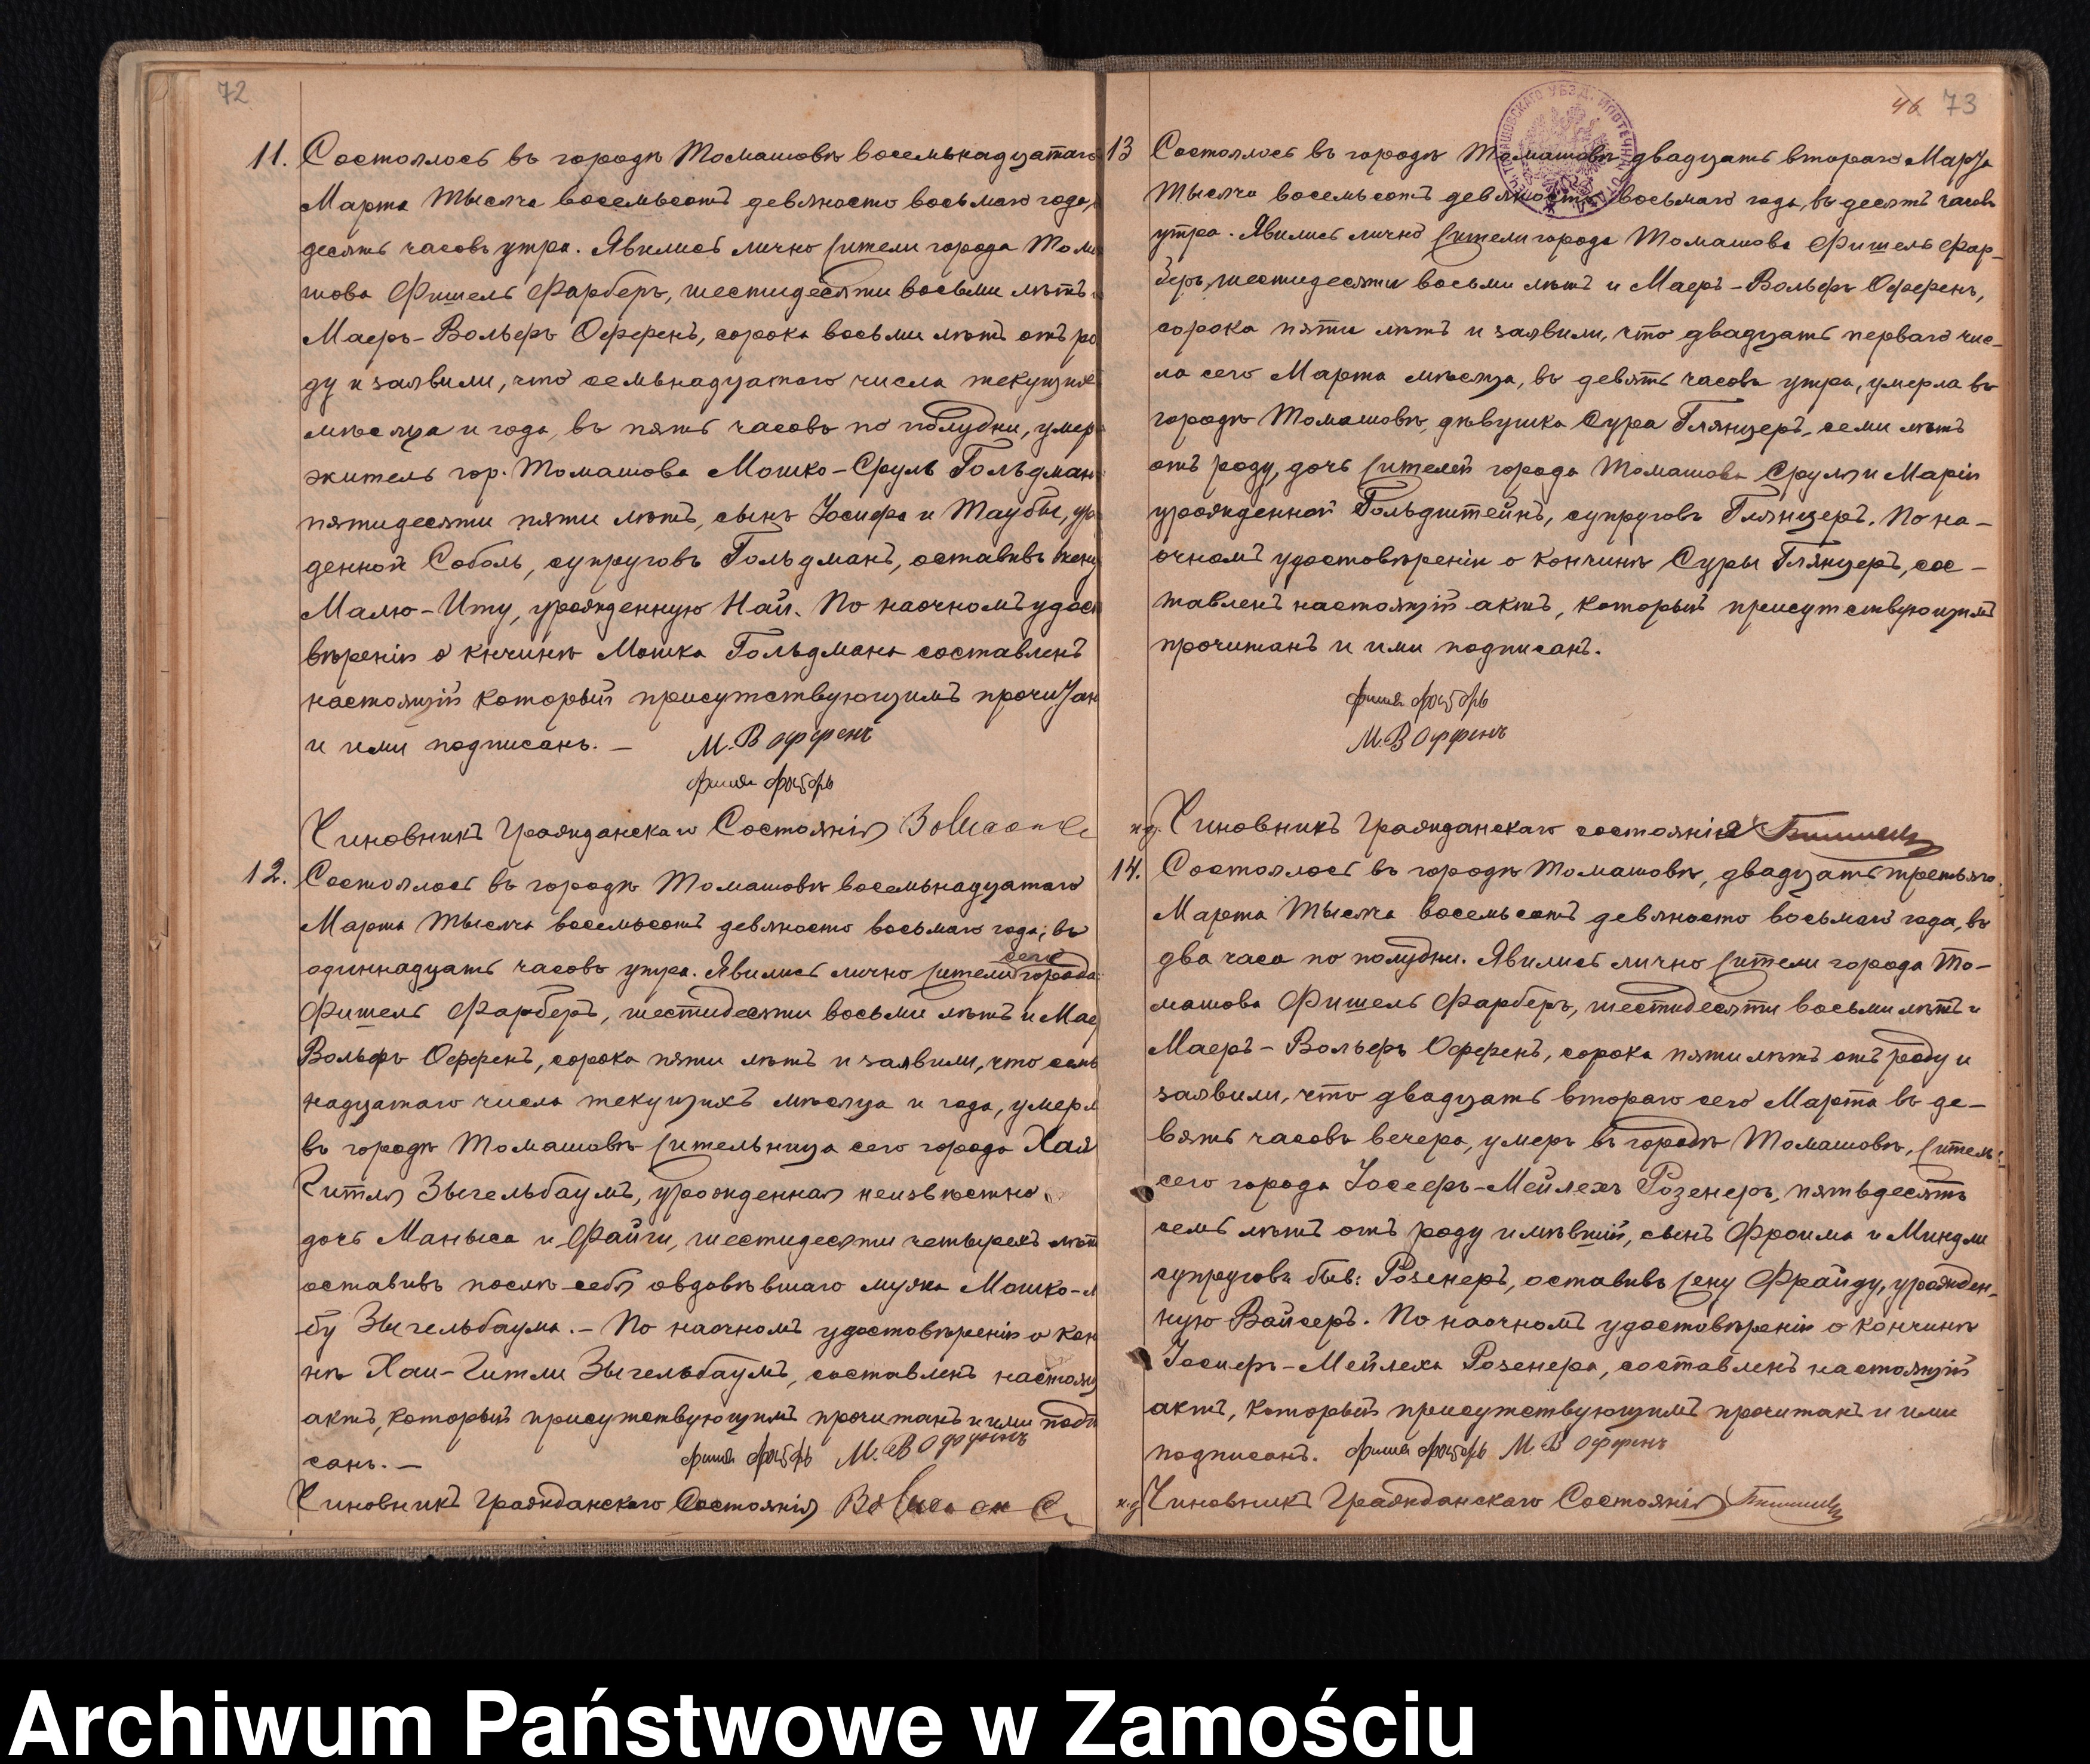 72
11. Состоялось въ городѣ Томашовѣ восемьнадцатаго
Марта тысяча восемьсотъ девяносто восьмаго года,
десять часовъ утра. Явились лично жители города Тома
шова Фишель Фарберъ, шестидесяти восьми лѣтъ
Маеръ-Вольфъ Офференъ, сорока восьми лѣтъ отъ ро
ду и заявили, что семьнадцатаго числа текущихъ
мѣсяца и года, въ пять часовъ по полудни, умеръ
житель гор. Томашова Мошко-Сруль Гольдман
пятидесяти пяти лѣтъ, сынъ Іосифа и Таубы, уро
денной Соболь, супруговъ Гольдманъ, оставивъ жену
Малю-Иту, урожденную Най. По наочномъ удост
вѣреніи о кнчинѣ Мошка Гольдмана составленъ
настоящій который присутствующимъ прочитан
и ими подписанъ. —
М. В Офференъ
Фишля Фарберъ
Чиновникъ Гражданскаго Состоянія
12. Состоялось въ городѣ Томашовѣ восемьнадцатаго
Марта тысяча восемьсотъ девяносто восьмаго года, въ
одиннадцать часовъ утра. Явились лично жители сего города
Фишель Фарберъ, шестидесяти восьми лѣтъ и Мае
Вольфъ Офференъ, сорока пяти лѣтъ и заявили, что семь
надцатаго числа текущихъ мѣсяца и года, умерл
въ городѣ Томашовѣ жительница сего города Хая
Гитля Зыгельбаумъ, урожденная неизвѣстно
дочь Маныса и Файги, шестидесяти четырехъ лѣт
оставивъ послѣ себя овдовѣвшаго мужа Мошко-Л
бу Зыгельбаума. — По наочномъ удостовѣреніи о кон
нѣ Хаи-Гитли Зыгельбаумъ, составленъ настоящ
актъ, который присутствующимъ прочитанъ и ими подп
санъ. —
Фишля Фарберъ М. В Офференъ
Чиновникъ Гражданскаго Состоянія
46 73
13 Состоялось въ городѣ Томашовѣ двадцать втораго Марта
тысяча восемьсотъ девяносто восьмаго года, въ десять часовъ
утра. Явились лично жители города Томашова Фишель Фар-
беръ, шестидесяти восьми лѣтъ и Маеръ-Вольфъ Офференъ,
сорока пяти лѣтъ и заявили, что двадцать перваго чис-
ла сего Марта мѣсяца, въ девять часовъ утра, умерла въ
городѣ Томашовѣ, дѣвушка Сура Глянцеръ, семи лѣтъ
отъ роду, дочь жителей города Томашова Сруля и Маріи
урожденной Гольдштейнъ, супруговъ Глянцеръ. По на-
очномъ удостовѣреніи о кончинѣ Суры Глянцеръ, сос-
тавленъ настоящій актъ, который присутствующимъ
прочитанъ и ими подписанъ.
Фишля Фарберъ
М. В Офференъ
и.д. Чиновникъ Гражданскаго состоянія
14. Состоялось въ городѣ Томашовѣ, двадцать третьяго
Марта тысяча восемьсотъ девяносто восьмаго года, въ
два часа по полудни. Явились лично жители города То-
машова Фишель Фарберъ, шестидесяти восьми лѣтъ и
Маеръ-Вольфъ Офференъ, сорока пяти лѣтъ отъ роду и
заявили, что двадцать втораго сего Марта въ де-
вять часовъ вечера, умеръ въ городѣ Томашовѣ, житель
сего города Іосефъ-Мейлехъ Розенеръ, пятьдесятъ
семь лѣтъ отъ роду имѣвшій, сынъ Фроима и Миндли
супруговъ быв: Розенеръ, оставивъ жену Фрайду, урожден-
ную Вайсеръ. По наочномъ удостовѣреніи о кончинѣ
Іосифъ-Мейлеха Розенера, составленъ настоящій
актъ, который присутствующимъ прочитанъ и ими
подписанъ. Фишля Фарберъ М В Офференъ
и.д. Чиновникъ Гражданскаго Состоянія
Archiwum Państwowe w Zamościu